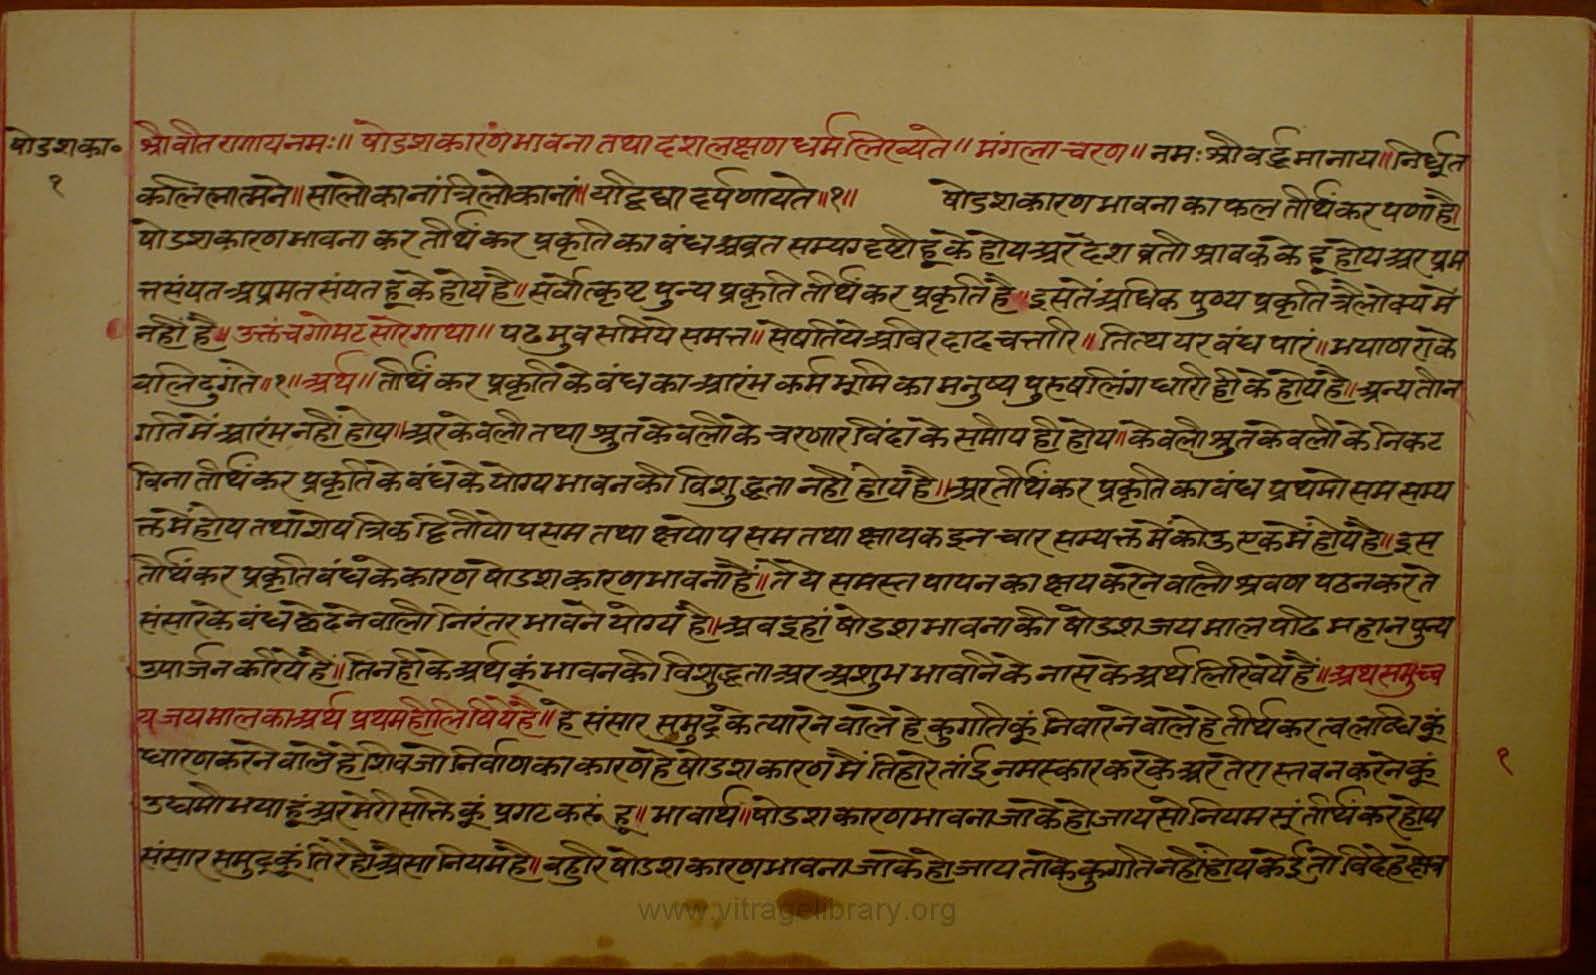 षोडशका०
१
श्रीवीतरागायनमः॥ षोडशकारणभावना तथा दशलक्षण धर्म लिख्यते॥ मंगलाचरण॥ नमः श्रीवर्द्धमानाय॥ निर्धूत
कलिलात्मने॥ सालोकानां त्रिलोकानां॥ यद्विद्या दर्पणायते॥१॥ षोडशकारण भावना का फल तीर्थंकर पणा है॥
षोडशकारण भावना कर तीर्थंकर प्रकृति का बंध अव्रत सम्यग्दृष्टी हू के होय अर देश व्रती श्रावक के हू होय अर प्रम
त्तसंयत अप्रमतसंयत हू के होय है॥ सर्वोत्कृष्ट पुन्य प्रकृति तीर्थंकर प्रकृति है॥ इसतें अधिक पुण्य प्रकृति त्रैलोक्य में
नहीं है॥ उक्तंच गोमटसार गाथा॥ पढमुवसमिये समत्त॥ सेषतिये अबिरदादचत्तारि॥ तित्थयर बंध पारं॥ भयाणराके
वलिदुगंते॥१॥ अर्थ॥ तीर्थंकर प्रकृति के बंध का आरंभ कर्म भूमि का मनुष्य पुरुषलिंग धारी ही के होय है॥ अन्य तीन
गति में आरंभ नहीं होय॥ अर केवली तथा श्रुत केवली के चरणारविंदा के समीप ही होय॥ केवली श्रुत केवली के निकट
विना तीर्थंकर प्रकृति के बंध के योग्य भावन की विशुद्धता नहीं होय है॥ अर तीर्थंकर प्रकृति का बंध प्रथमोसम सम्य
क्त में होय तथा शेष त्रिक द्वितीयोपसम तथा क्षयोपसम तथा क्षायक इन चार सम्यक्त में कोऊ एक में होय है॥ इस
तीर्थंकर प्रकृति बंध के कारण षोडशकारण भावना हैं॥ ते ये समस्त पापन का क्षय करने वाली श्रवण पठन करते
संसार के बंध छेदने वाली निरंतर भावने योग्य है॥ अब इहां षोडश भावना की षोडश जयमाल पढि महान पुन्य
उपार्जन करिये हैं॥ तिनही के अर्थ कूं भावन की विशुद्धता अर अशुभ भावनि के नास के अर्थ लिखिये हैं॥ अथ समुच्च
य जयमाल का अर्थ प्रथमही लिषिये है॥ हे संसार समुद्र के त्यारने वाले हे कुगति कूं निवारने वाले हे तीर्थंकरत्व लब्धि कूं
धारण करने वाले हे शिव जो निर्वाण का कारण हे षोडशकारण मैं तिहारे तांई नमस्कार करके अर तेरा स्तवन करने कूं
उद्यमी भया हूं अर मेरी सक्ति कूं प्रगट करूं हू॥ भावार्थ॥ षोडशकारण भावना जाके हो जाय सो नियम सूं तीर्थंकर होय
संसार समुद्र कूं तिरे ही अैसा नियम है॥ बहुरि षोडशकारण भावना जाके हो जाय ताके कुगति नहीं होय केई तो विदेह क्षेत्र
१
www.vitragelibrary.org